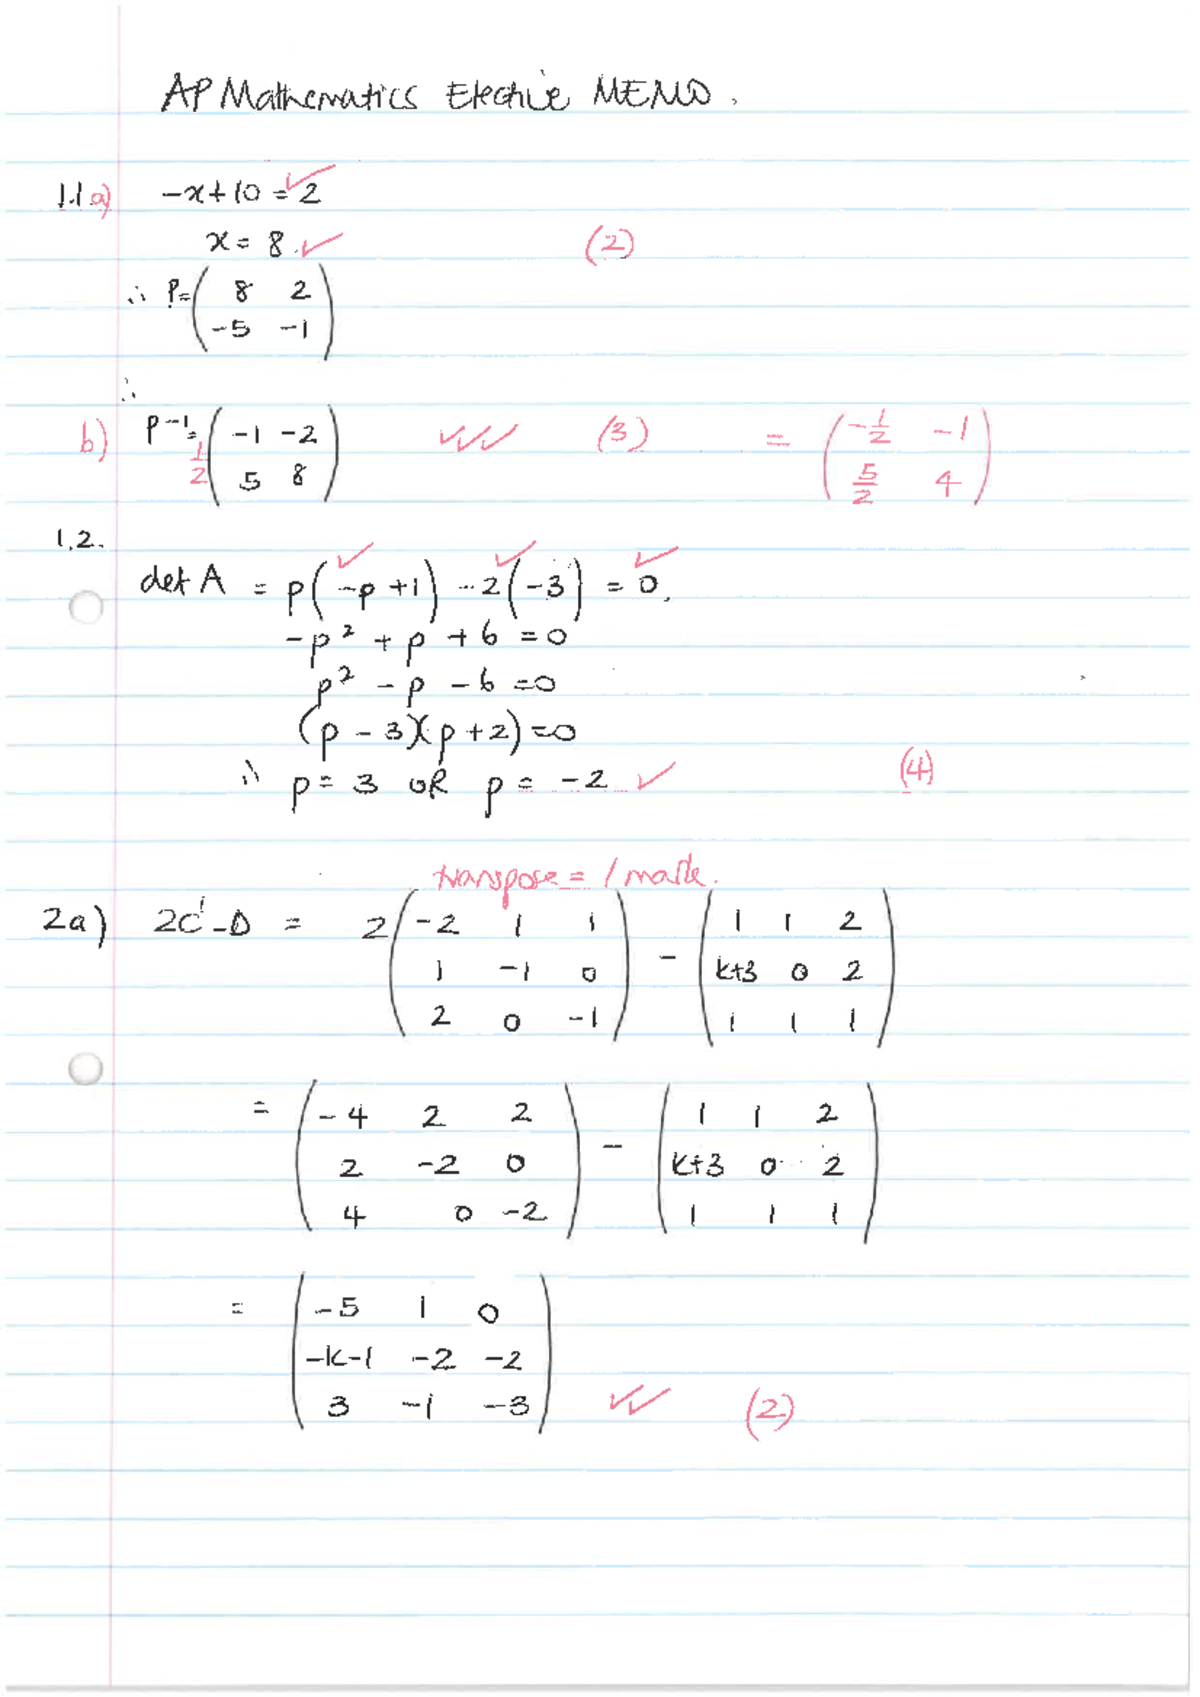 AP Mathematics Elective MEMO.
1.1 a) -x+10 = 2 ✓
x = 8. ✓ (2)
∴ P = ( 8 2
-5 -1 )
∴
b) P-1 = 1/2 ( -1 -2 ✓✓✓ (3) = ( -1/2 -1
5 8 ) 5/2 4 )
1.2.
det A = p(-p+1) - 2(-3) = 0. ✓ ✓ ✓
-p² + p + 6 = 0
p² - p - 6 = 0
(p - 3)(p + 2) = 0
∴ p = 3 OR p = -2 ✓ (4)
transpose = 1 mark.
2a) 2C' - D = 2 ( -2 1 1 ) - ( 1 1 2 )
( 1 -1 0 ) ( k+3 0 2 )
( 2 0 -1 ) ( 1 1 1 )
= ( -4 2 2 ) - ( 1 1 2 )
( 2 -2 0 ) ( k+3 0 2 )
( 4 0 -2 ) ( 1 1 1 )
= ( -5 1 0 )
( -k-1 -2 -2 )
( 3 -1 -3 ) ✓✓ (2)